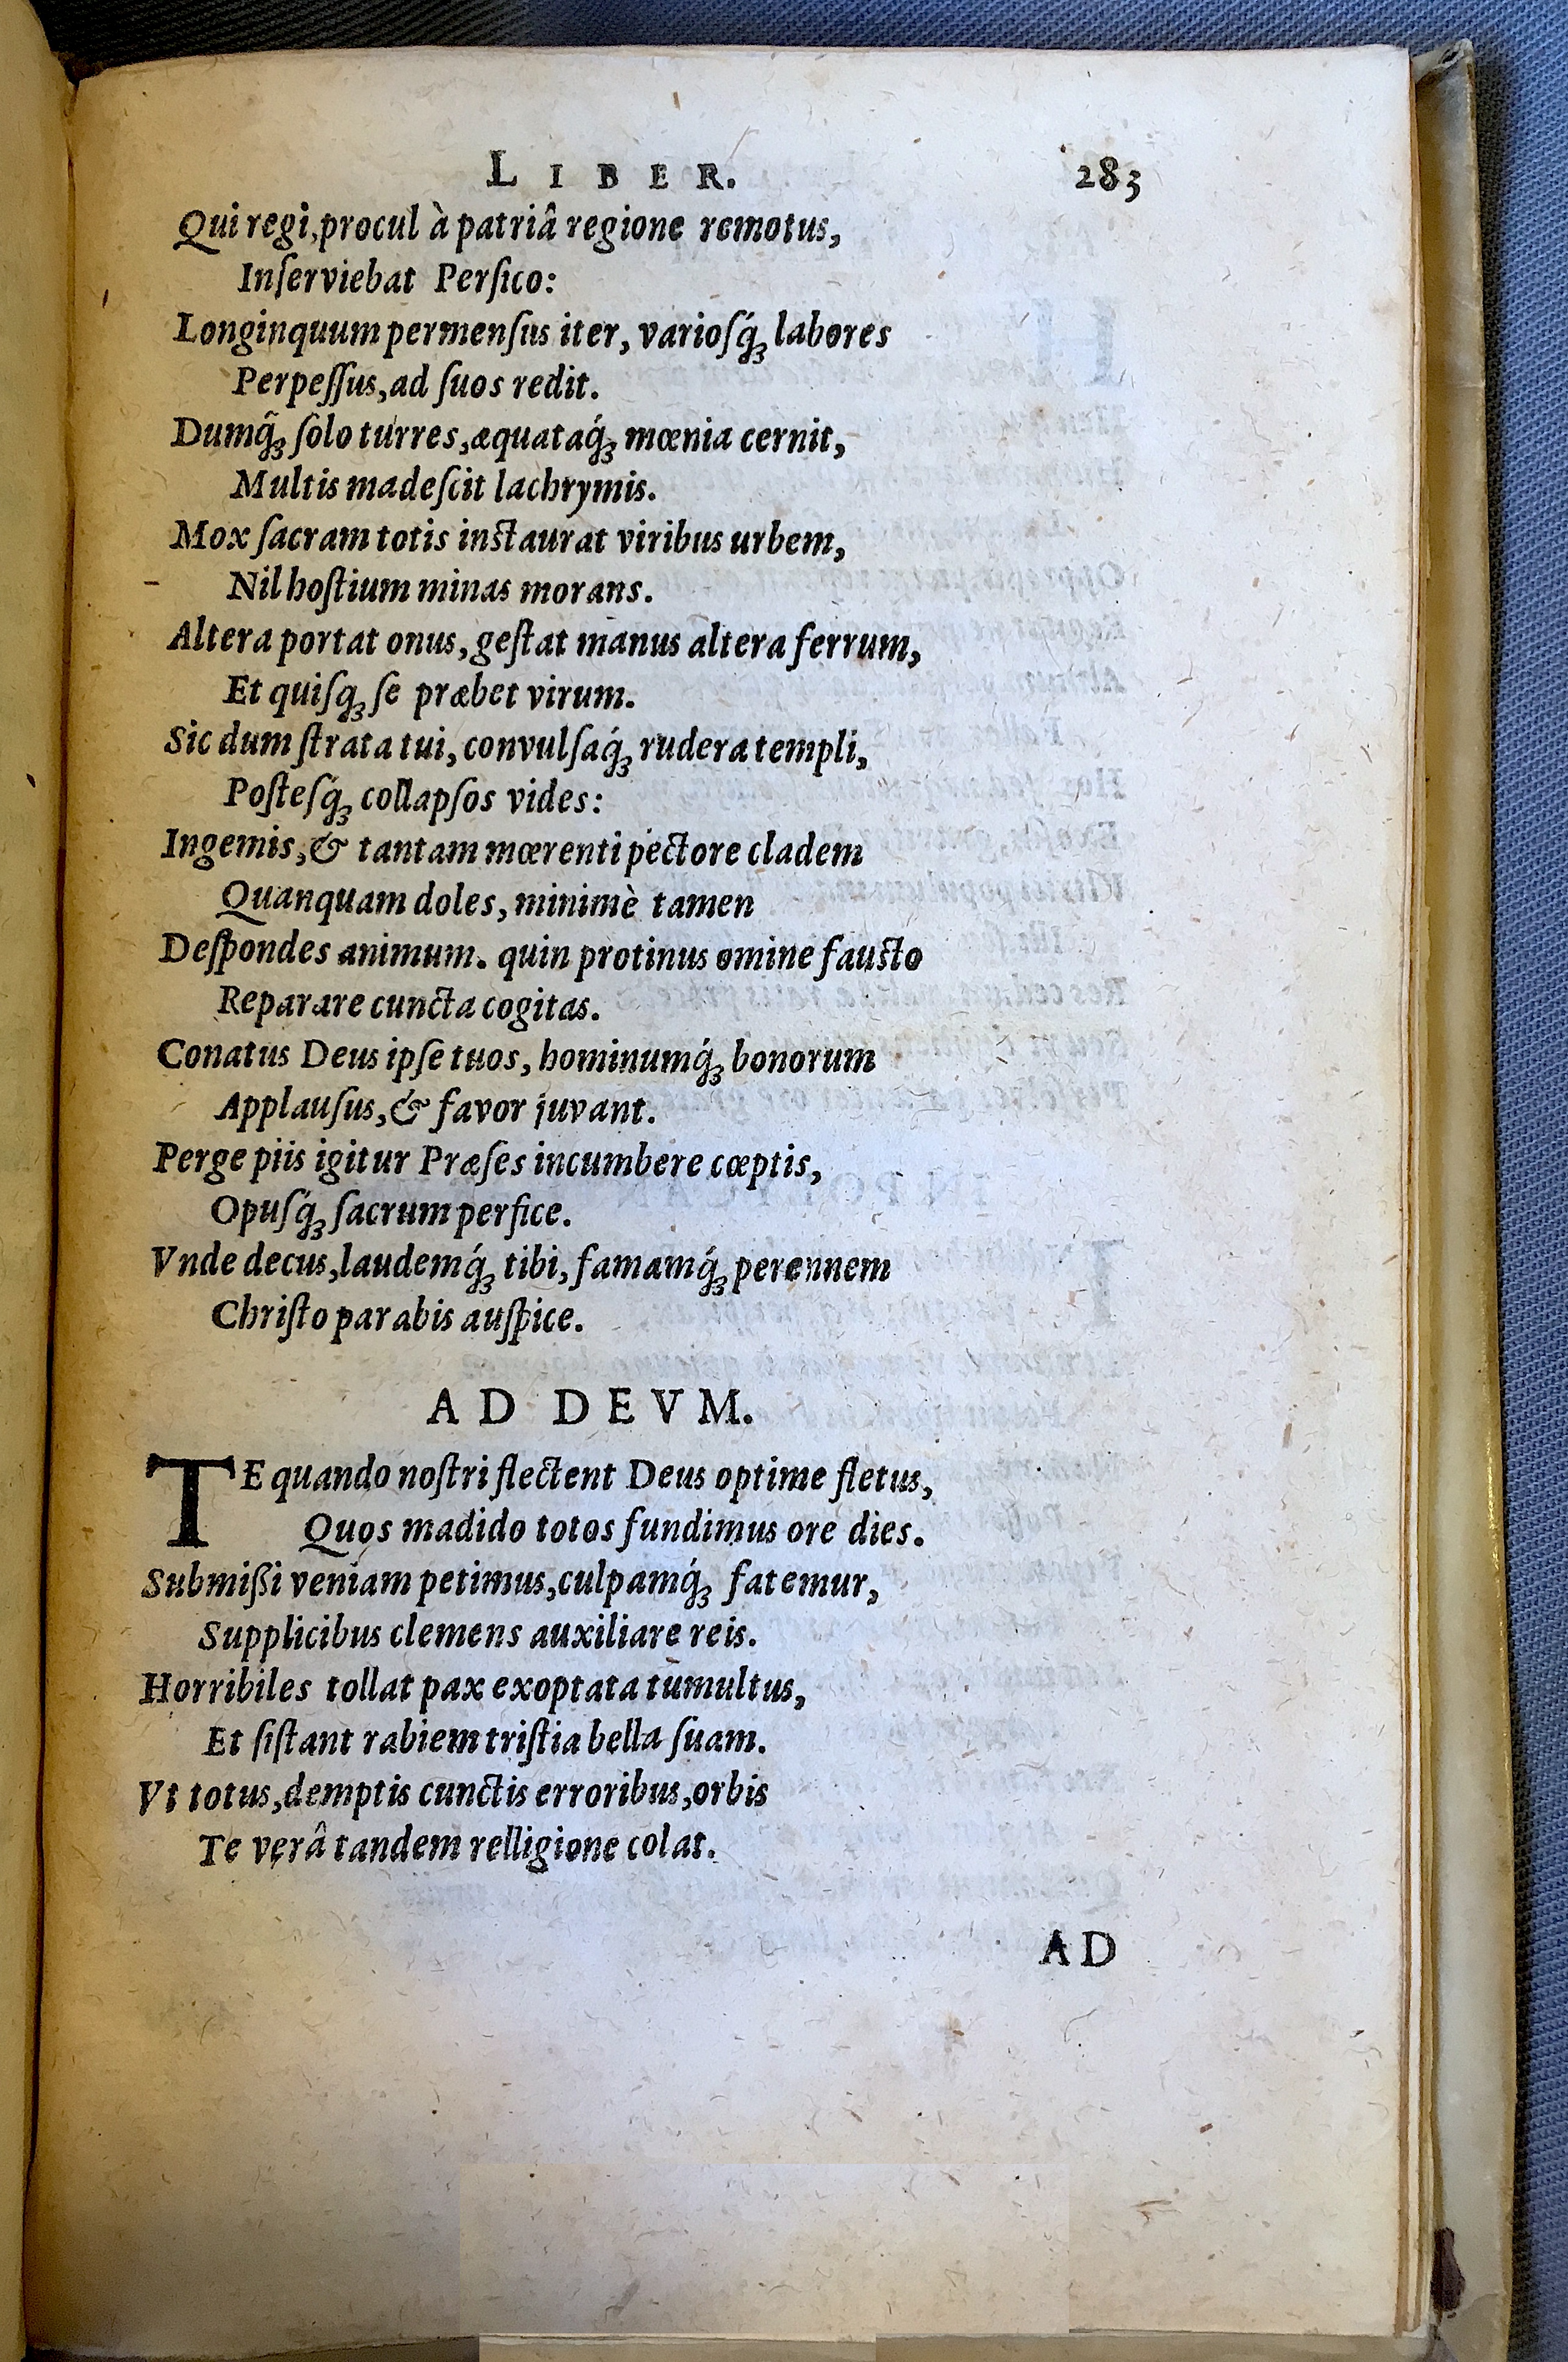 LIBER. 283
Qui regi, procul à patriâ regione remotus,
Inſerviebat Perſico:
Longinquum permenſus iter, varioſq́; labores
Perpeſſus, ad ſuos redit.
Dumq̃; ſolo turres, æquataq́; mœnia cernit,
Multis madeſcit lachrymis.
Mox ſacram totis inſtaurat viribus urbem,
Nil hoſtium minas morans.
Altera portat onus, geſtat manus altera ferrum,
Et quiſq; ſe præbet virum.
Sic dum ſtrata tui, convulſaq́; rudera templi,
Poſteſq́; collapſos vides:
Ingemis, & tantam mœrenti pectore cladem
Quanquam doles, minimè tamen
Deſpondes animum. quin protinus omine fauſto
Reparare cuncta cogitas.
Conatus Deus ipſe tuos, hominumq́; bonorum
Applauſus, & favor juvant.
Perge piis igitur Præſes incumbere cœptis,
Opuſq́; ſacrum perfice.
Vnde decus, laudemq́; tibi, famamq́; perennem
Chriſto parabis auſpice.
AD DEVM.
TE quando noſtri flectent Deus optime fletus,
Quos madido totos fundimus ore dies.
Submißi veniam petimus, culpamq́; fatemur,
Supplicibus clemens auxiliare reis.
Horribiles tollat pax exoptata tumultus,
Et ſiſtant rabiem triſtia bella ſuam.
Vt totus, demptis cunctis erroribus, orbis
Te verâ tandem relligione colat.
AD